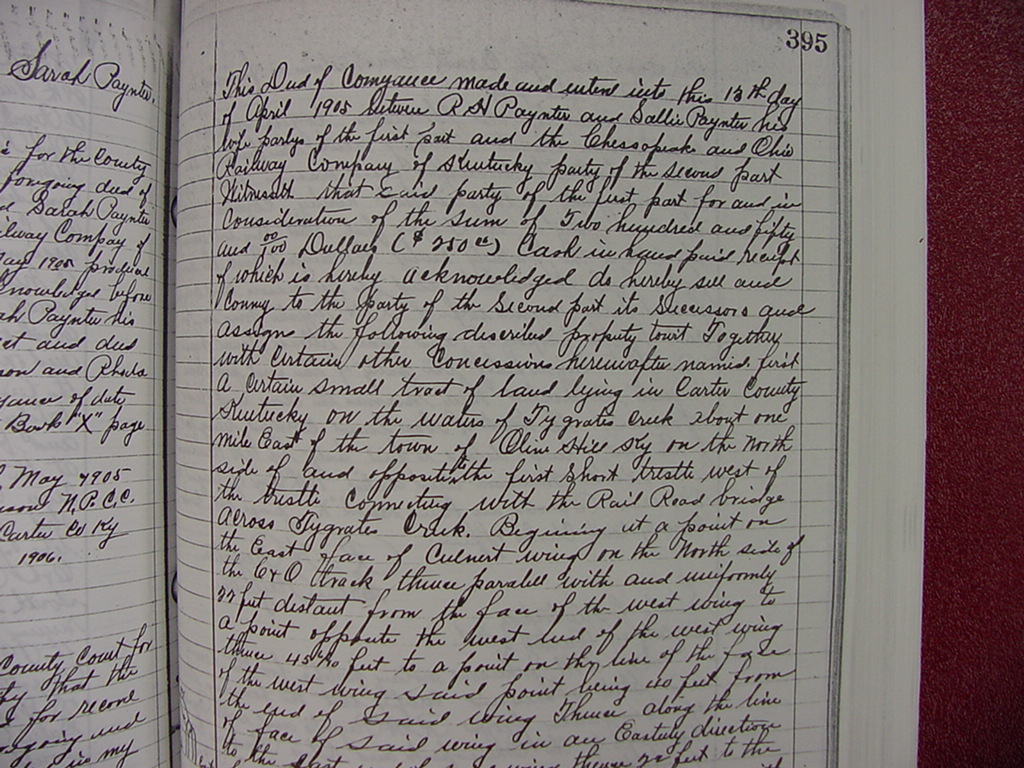 395
Sarah Paynter.
for the County
foregoing deed of
Sarah Paynter
Railway Compay of
May 1905 produced
acknowledged before
Sarah Paynter his
act and deed
son and Rhoda
of date
Book "X" page
May 1905
N.P.C.C.
Carter Co Ky
1906.
County Court for
that the
for record
foregoing and
in my
This Deed of Conveyance made and entered into this 13th day
of April 1905 between R H Paynter and Sallie Paynter his
wife partys of the first part and the Chessopeake and Ohio
Railway Company of Kentucky party of the second part
Witnesseth that said party of the first part for and in
Consideration of the sum of Two hundred and fifty
and 00/100 Dollars ($250 00) Cash in hand paid receipt
of which is hereby acknowledged do hereby sell and
Convey to the party of the second part its Successors and
assigns the following described property towit Together
with Certain other Concessions hereinafter named, first
A Certain small tract of land lying in Carter County
Kentucky on the waters of Tygrates Creek about one
mile East of the town of Olive Hill Ky on the North
side of and opposite the first short trestle west of
the trestle Connecting with the Rail Road bridge
across Tygrates Creek. Begining at a point on
the East face of Culvert wing on the North side of
the C&O track thence paralell with and uniformly
22 feet distant from the face of the west wing to
a point opposite the west end of the west wing
thence feet to a point on the line of the face
of the west wing said point being feet from
the end of said wing Thence along the line
of face of said wing in an Easterly direction
to the East end of wing thence 22 feet to the